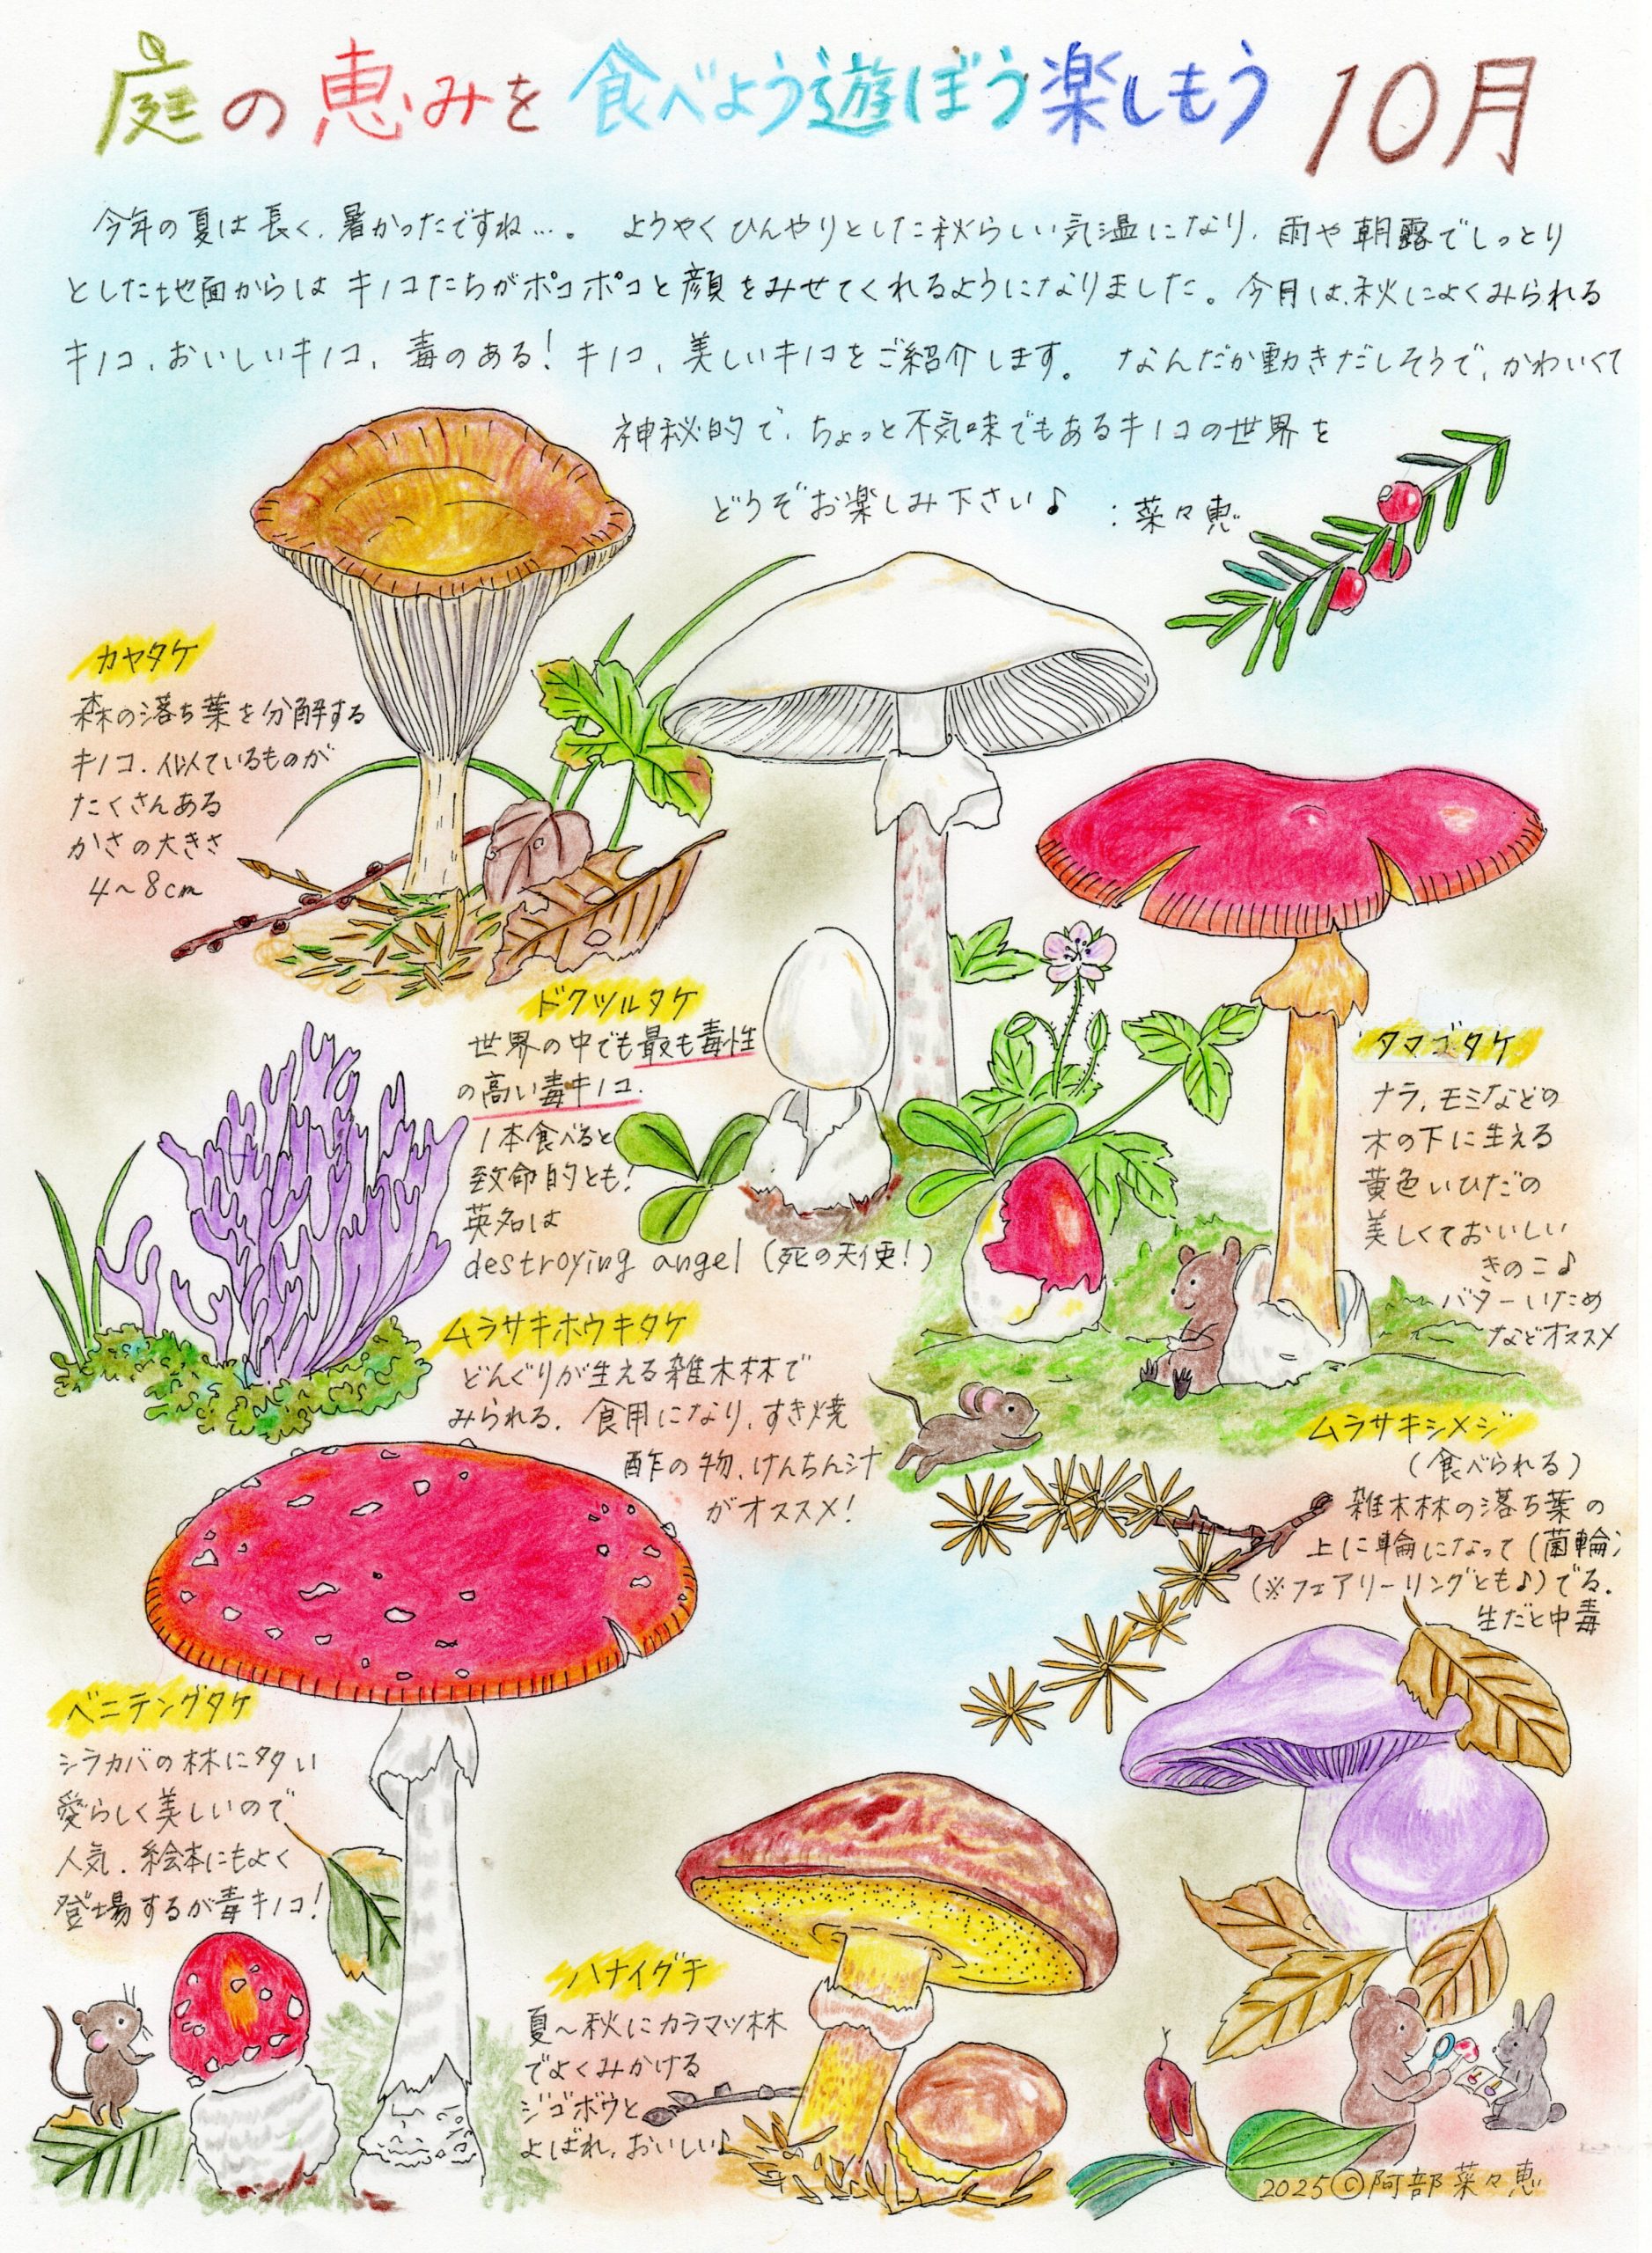 庭の恵みを食べよう遊ぼう楽しもう 10月
今年の夏は長く、暑かったですね…。 ようやくひんやりとした秋らしい気温になり、雨や朝露でしっとり
とした地面からはキノコたちがポコポコと顔をみせてくれるようになりました。今月は、秋によくみられる
キノコ、おいしいキノコ、毒のある！キノコ、美しいキノコをご紹介します。 なんだか動きだしそうで、かわいくて
神秘的で、ちょっと不気味でもあるキノコの世界を
どうぞお楽しみ下さい♪ ：菜々恵
カヤタケ
森の落ち葉を分解する
キノコ．似ているものが
たくさんある
かさの大きさ
4〜8cm
ドクツルタケ
世界の中でも最も毒性
の高い毒キノコ．
1本食べると
致命的とも！
英名は
destroying angel（死の天使！）
タマゴタケ
ナラ，モミなどの
木の下に生える
黄色いひだの
美しくておいしい
きのこ♪
バターいため
などオススメ
ムラサキホウキタケ
どんぐりが生える雑木林で
みられる．食用になり，すき焼
酢の物、けんちん汁
がオススメ！
ムラサキシメジ
（食べられる）
雑木林の落ち葉の
上に輪になって（菌輪）
（※フェアリーリングとも♪）でる．
生だと中毒
ベニテングタケ
シラカバの林に多い
愛らしく美しいので
人気．絵本にもよく
登場するが毒キノコ！
ハナイグチ
夏〜秋にカラマツ林
でよくみかける
ジゴボウと
よばれ，おいしい♪
2025©阿部菜々恵